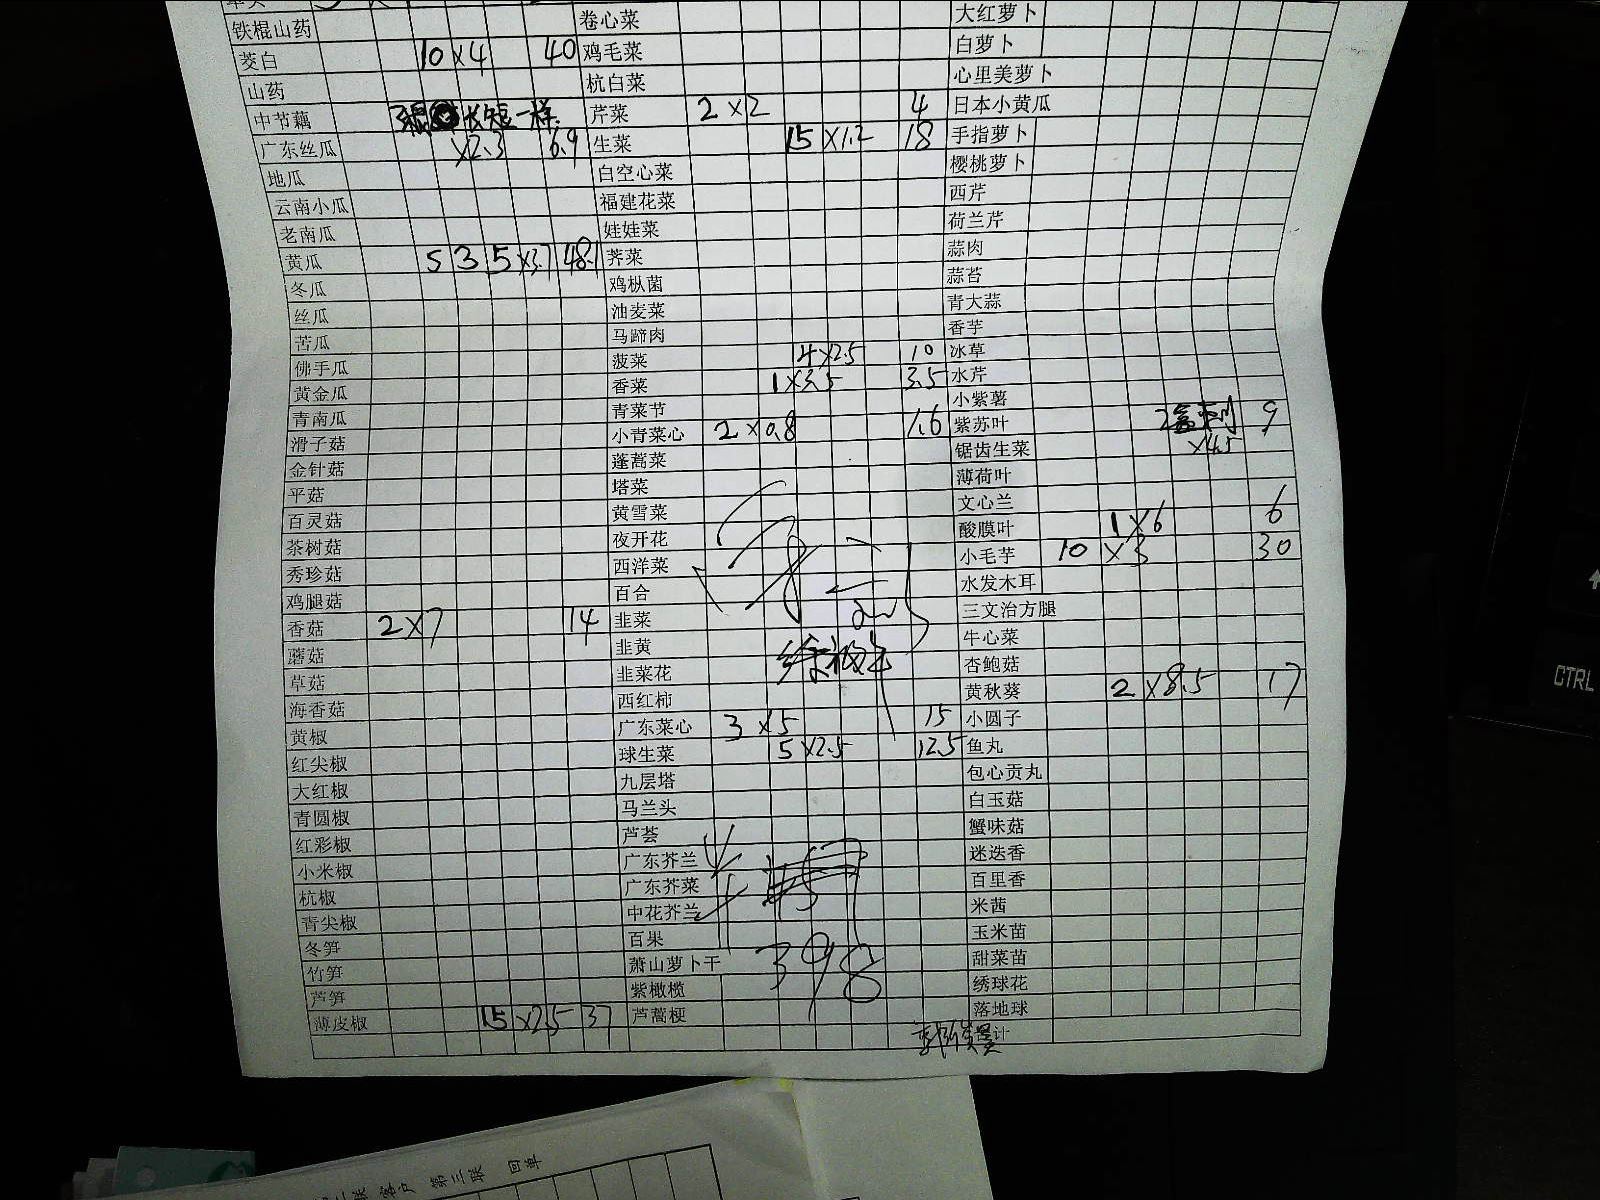 铁棍山药 卷心菜 大红萝卜
茭白 10 ×4 40 鸡毛菜 白萝卜
山药 杭白菜 心里美萝卜
中节藕 长短一样 芹菜 2 ×2 4 日本小黄瓜
广东丝瓜 ×2.3 6.9 生菜 15 ×1.2 18 手指萝卜
地瓜 白空心菜 樱桃萝卜
云南小瓜 福建花菜 西芹
老南瓜 娃娃菜 荷兰芹
黄瓜 5 3 5 ×3.7 48.1 荠菜 蒜肉
冬瓜 鸡枞菌 蒜苔
丝瓜 油麦菜 青大蒜
苦瓜 马蹄肉 香芋
佛手瓜 菠菜 4 ×2.5 10 冰草
黄金瓜 香菜 1 ×3.5 3.5 水芹
青南瓜 青菜节 小紫薯
滑子菇 小青菜心 2 ×0.8 1.6 紫苏叶 2盒 9
金针菇 蓬蒿菜 锯齿生菜 ×4.5
平菇 塔菜 薄荷叶
百灵菇 黄雪菜 文心兰
茶树菇 夜开花 酸膜叶 1 ×6 6
秀珍菇 西洋菜 小毛芋 10 ×3 30
鸡腿菇 百合 水发木耳
香菇 2 ×7 14 韭菜 三文治方腿
蘑菇 韭黄 牛心菜
草菇 韭菜花 杏鲍菇
海香菇 西红柿 黄秋葵 2 ×8.5 17
黄椒 广东菜心 3 ×5 15 小圆子
红尖椒 球生菜 5 ×2.5 12.5 鱼丸
大红椒 九层塔 包心贡丸
青圆椒 马兰头 白玉菇
红彩椒 芦荟 蟹味菇
小米椒 广东芥兰 迷迭香
杭椒 广东芥菜 百里香
青尖椒 中花芥兰 米茜
冬笋 百果 玉米苗
竹笋 萧山萝卜干 398 甜菜苗
芦笋 紫橄榄 绣球花
薄皮椒 15 ×2.5 37 芦蒿梗 落地球
计
客户 第三联 回单
CTRL